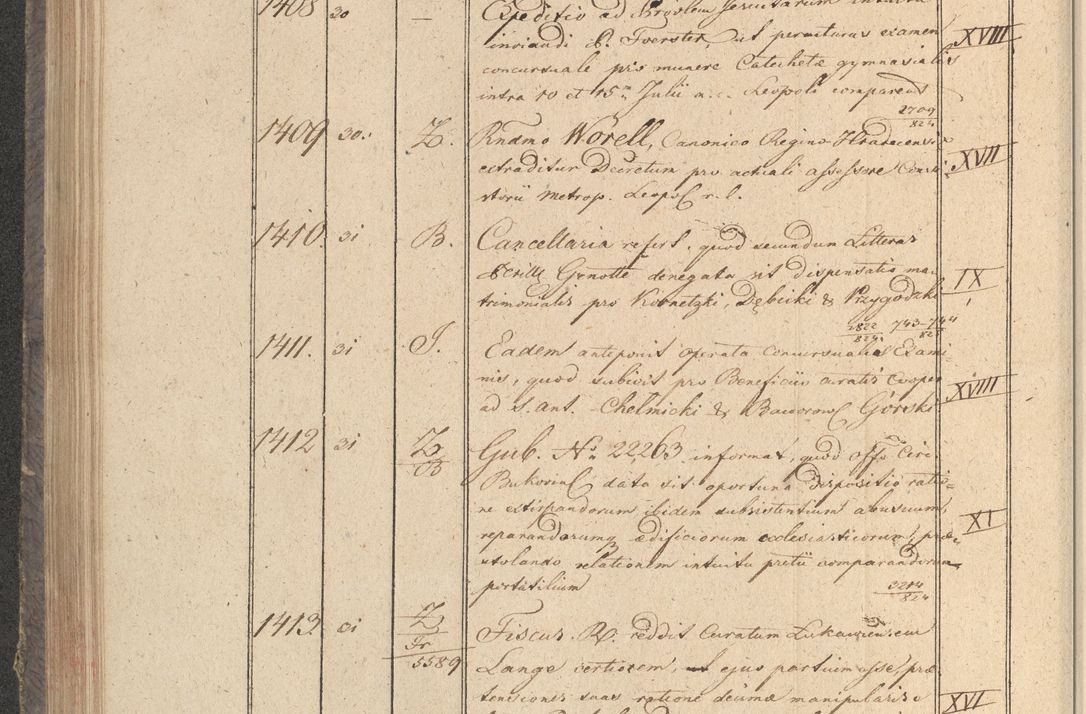 1408 30 — Expeditio ad Provlem Jesuitarum intuitu
inviandi P. Foerster, ut periturus examen XVIII
concursuale pro munere Catechetæ gymnasialis
intra 10 et 15m Julii a. c. Leopoli compareat
2709/824
1409 30. Z. Rndmo Worell, Canonico Regino-Hradecensi
extraditur Decretum pro actuali assessore Consi- XVII
storii Metrop. Leopol r. l.
1410. 31 B. Cancellaria refert, quod secundum Litteras
Genotte denegata sit dispensatio ma- IX
trimonialis pro Kornetzki, Dębicki & Przygodzki
2822/824 743-744/82
1411. 31 J. Eadem anteponit operata Concursualia Exami-
nis, quod subivit pro Beneficiis curatis Cooper XVIII
ad S. Ant. Chelmicki & Baworow Górski
1412 31 Z/B Gub. No 22263 informat, quod offo Circ.
Bukovin data sit oportuna dispositio ratio=
ne extirpandorum ibidem subsistentium abusuum, XI
reparandorumq ædificiorum ecclesiasticorum, præ-
stolando relationem intuitu pretii comparandorum
portatilium
3214/824
1413. 31 Z/Fr/5589 Fiscus R. reddit Curatum
Lange certiorem, ejus partium esse, præ
tensiones suas ratione decimæ manipularis XVI